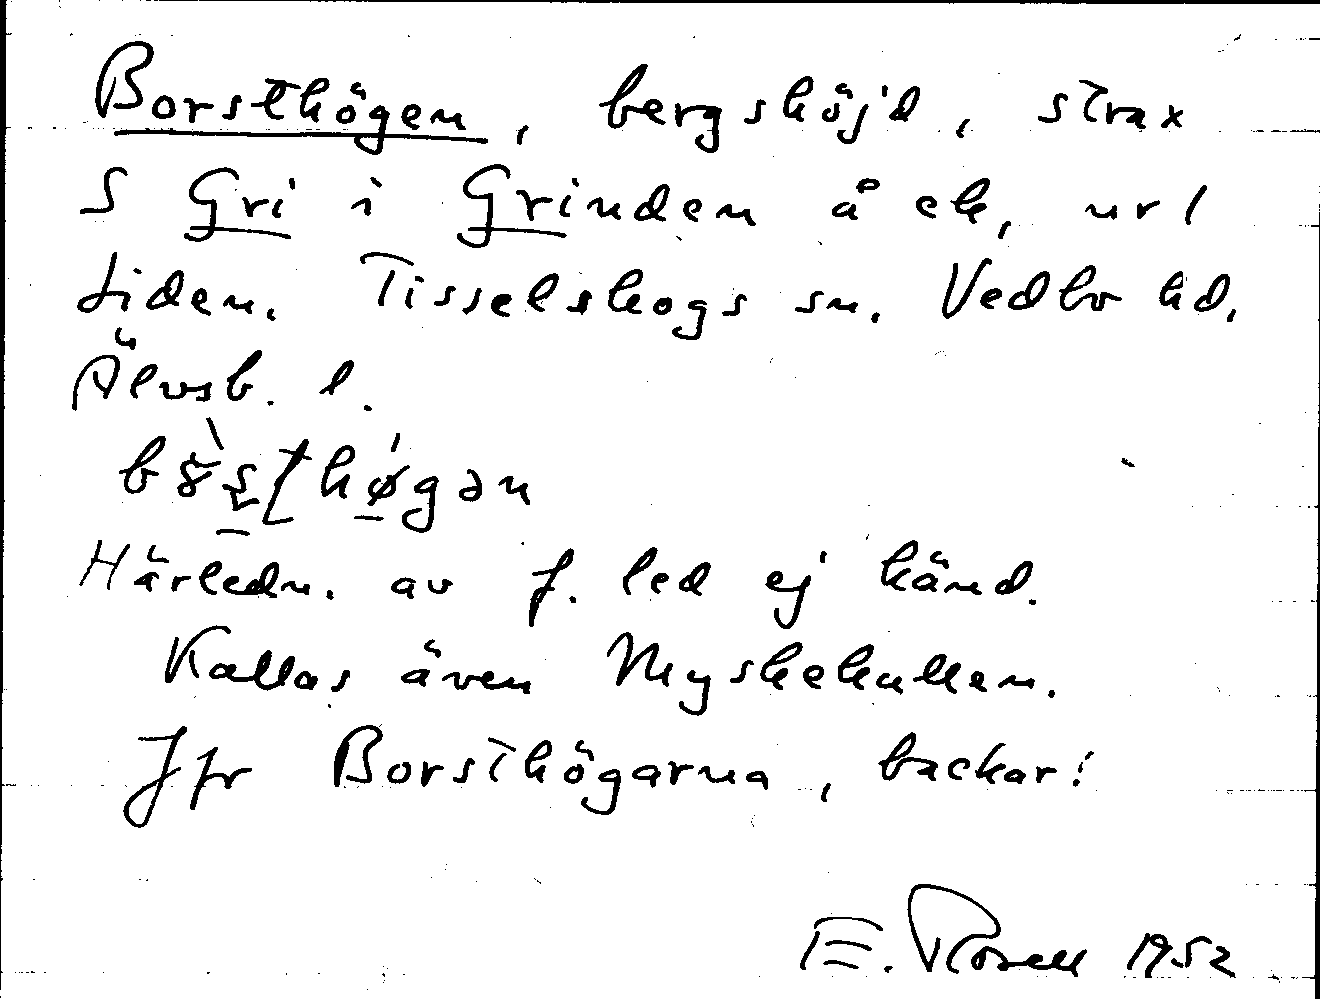 Borsthögen, bergshöjd, strax
S Gri i Grinden å ek, url
Liden. Tisselskogs sn. Vedbo hd.
Älvsb. l.
Härledn. av f. led ej känd.
Kallas även Myskekullen.
Jfr Borsthögarna, backar!
E. Rosell 1952